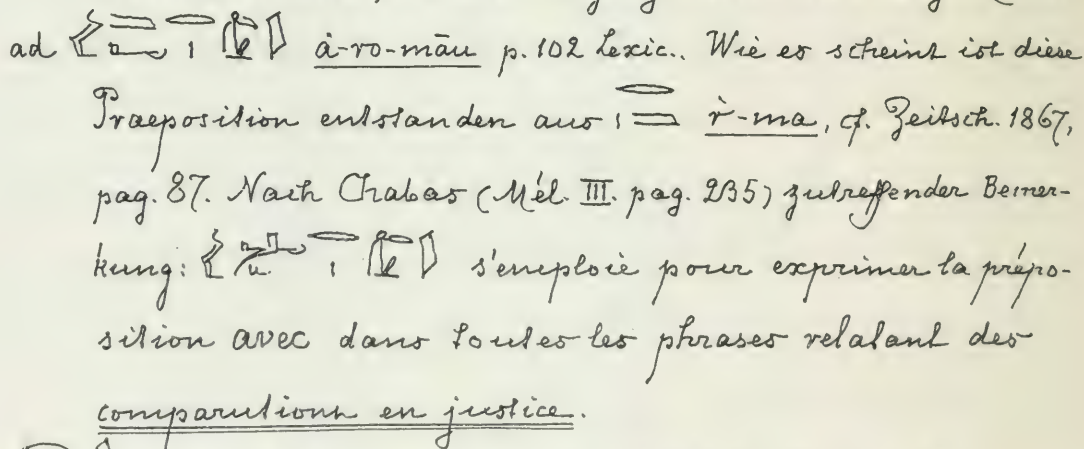 ad à-ro-māu p. 102 Lexic.. Wie es scheint ist diese
Praeposition entstanden aus r̀-ma, cf. Zeitsch. 1867,
pag. 87. Nach Chabas (Mél. III. pag. 235) zutreffender Bemer-
kung: s'emploie pour exprimer la prépo-
sition avec dans toutes les phrases relatant des
comparutions en justice.